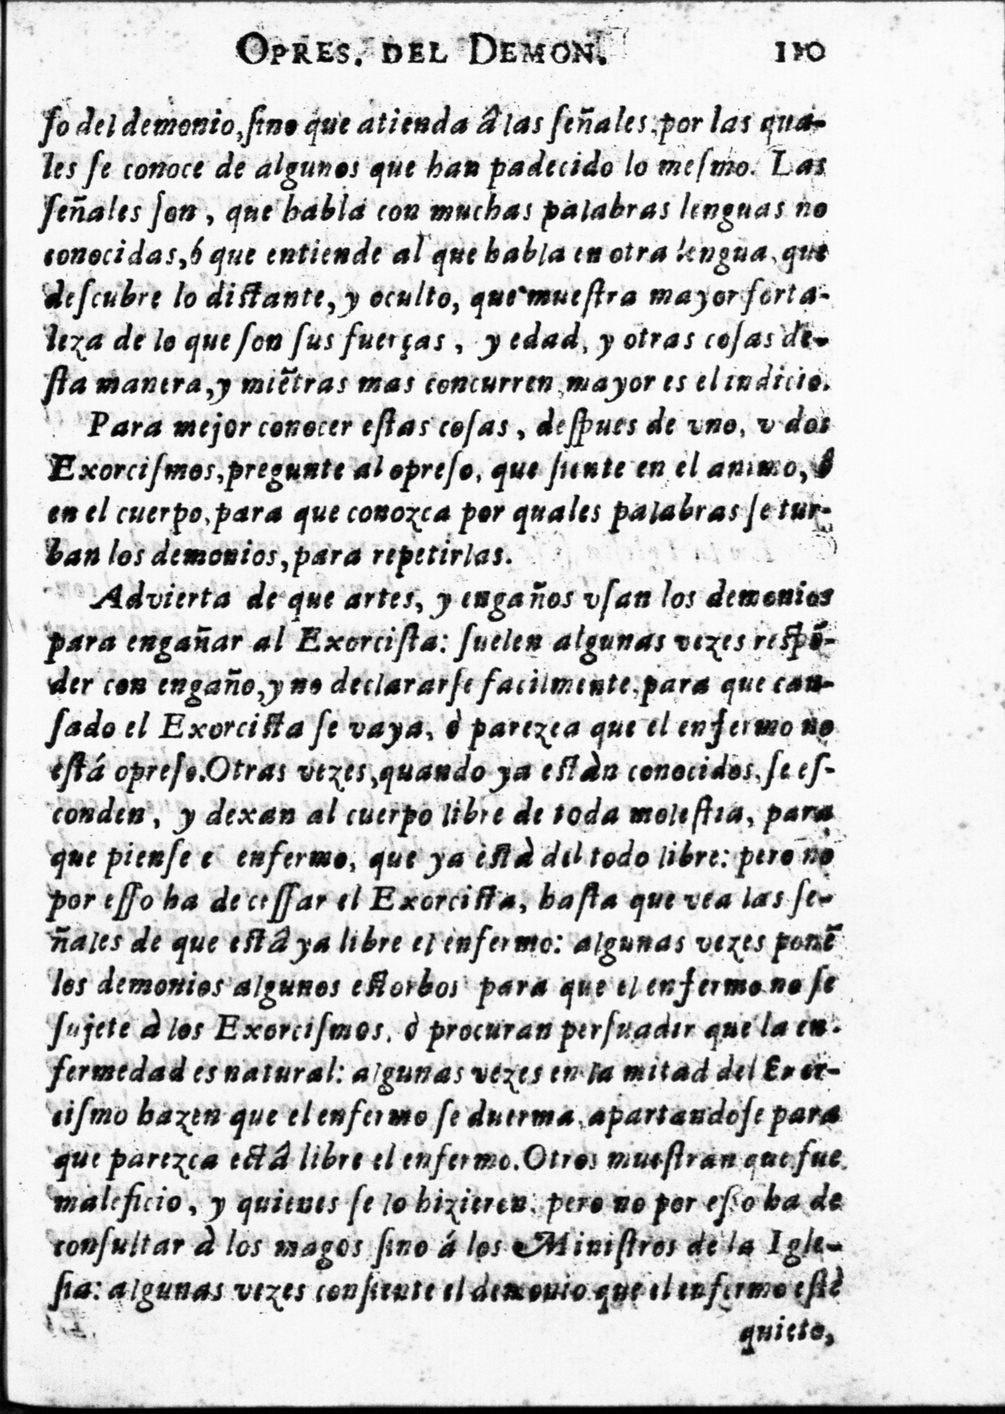 OPRES. DEL DEMON. 110
ſo del demonio, ſino que atienda â las ſeñales, por las qua-
les ſe conoce de algunos que han padecido lo meſmo. Las
ſeñales ſon, que habla con muchas palabras lenguas no
conocidas, ó que entiende al que habla en otra lengua, que
deſcubre lo diſtante, y oculto, que mueſtra mayor forta-
leza de lo que ſon ſus fuerças, y edad, y otras coſas de-
ſta manera, y miẽtras mas concurren mayor es el indicio.
Para mejor conocer eſtas coſas, deſpues de vno, v dos
Exorciſmos, pregunte al opreſo, que ſiente en el animo, ô
en el cuerpo, para que conozca por quales palabras ſe tur-
ban los demonios, para repetirlas.
Advierta de que artes, y engaños vſan los demonios
para engañar al Exorciſta: ſuelen algunas vezes reſpõ-
der con engaño, y no declararſe facilmente, para que can-
ſado el Exorciſta ſe vaya, ò parezca que el enfermo no
eſtá opreſo. Otras vezes, quando ya eſtàn conocidos, ſe eſ-
conden, y dexan al cuerpo libre de toda moleſtia, para
que pienſe e enfermo, que ya eſtà del todo libre: pero no
por eſſo ha de ceſſar el Exorciſta, haſta que vea las ſe-
ñales de que eſtâ ya libre el enfermo: algunas vezes ponẽ
los demonios algunos eſtorbos para que el enfermo no ſe
ſujete à los Exorciſmos, ò procuran perſuadir que la en-
fermedad es natural: algunas vezes en la mitad del Exor-
ciſmo hazen que el enfermo ſe duerma, apartandoſe para
que parezca eſtâ libre el enfermo. Otros mueſtran que fue
maleficio, y quienes ſe lo hizieren, pero no por eſſo ha de
conſultar à los magos ſino á los Miniſtros de la Igle-
ſia: algunas vezes conſiente el demonio que el enfermo eſtè
quieto,